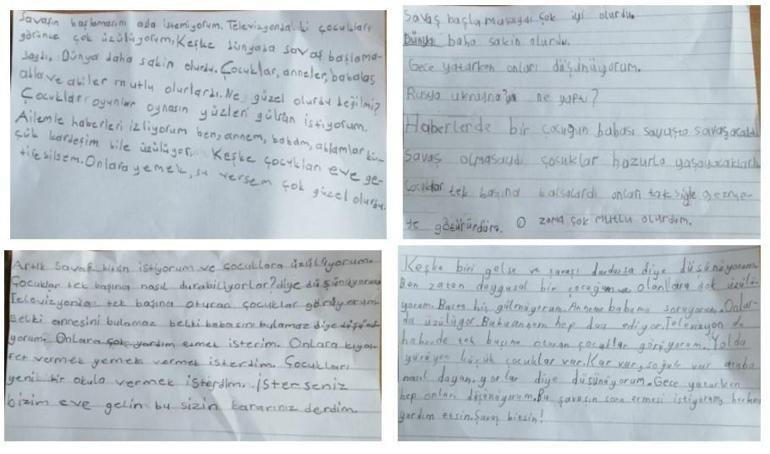 Savaşın başlamasını asla istemiyorum. Televizyonda ki çocukları
görünce çok üzülüyorum, Keşke dünyada savaş başlama-
saydı. Dünya daha sakin olurdu. Çocuklar, anneler, babalar,
abla ve abiler mutlu olurlardı. Ne güzel olurdu değilmi?
Çocukları oyunlar oynasın yüzleri gülsün istiyorum.
Ailemle haberleri izliyorum ben, annem, babam, ablamlar kü-
çük kardeşim bile üzülüyor. Keşke çocukları eve ge-
tirebilsem. Onlara yemek, su versem çok güzel olurdu.
Savaş başlamasaydı çok iyi olurdu.
Dünya daha sakin olurdu.
Gece yatarken onları düşünüyorum.
Rusya ne yaptı?
Haberlerde bir çocuğun babası savaşta
Savaş olmasaydı çocuklar huzurla yaşayacaklardı
Çocuklar tek başına kalsalardı onları gezme-
te götürürdüm. O zama çok mutlu olurdum.
Artık savaş bitsin istiyorum ve çocuklara üzülüyorum.
Çocuklar tek başına nasıl durabiliyorlar? diye düşünüyorum
Televizyonda tek başına oturan çocuklar görüyorum
Belki annesini bulamaz belki babasını bulamaz diye düşün
yorum. Onlara çok yardım etmek isterim. Onlara kıya-
fet vermek yemek vermek isterdim. Çocukları
yeni bir okula vermek isterdim. isterseniz
bizim eve gelin bu sizin kararınız derdim.
Keşke biri gelse ve savaşı durdursa diye düşünüyorum
Ben zaten duygusal bir çocuğum ve olanlara çok üzülü-
yorum. Bazen hiç gülmüyorum. Anneme babama soruyorum. Onlar-
da üzülüyor. Babaannem hep dua ediyor. Televizyon da
haberde tek başına oturan çocuklar görüyorum. Yolda
yürüyen küçük çocuklar var. Kar var, soğuk var acaba
nasıl dayanıyorlar diye düşünüyorum. Gece yatarken
hep onları düşünüyorum. Bu savaşın sona ermesi istiyorum herkes
yardım etsin. Savaş bitsin!